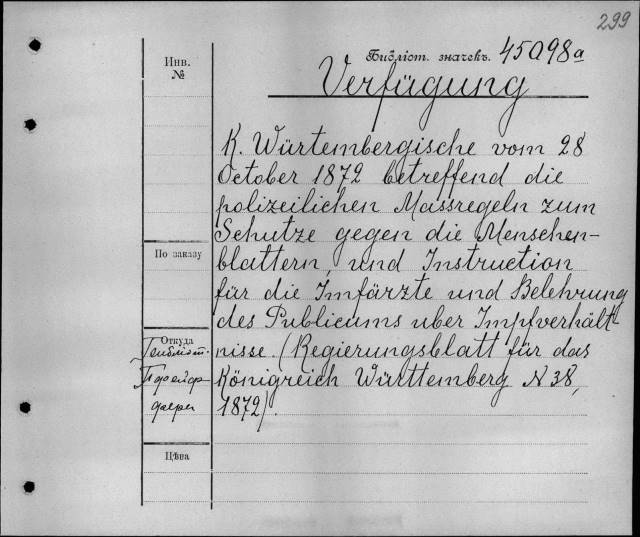 299
Библіот. значекъ. 45a98a
Инв.
№
Verfügung
K. Würtembergische vom 28
October 1872 betreffend die
polizeilichen Massregeln zum
Schutze gegen die Menschen-
blattern, und Instruction
По заказу
für die Imfärzte und Belehrung
des Publicums uber Impfverhält
Откуда
nisse. (Regierungsblatt für das
Königreich Württemberg N 38,
1872).
Цѣна